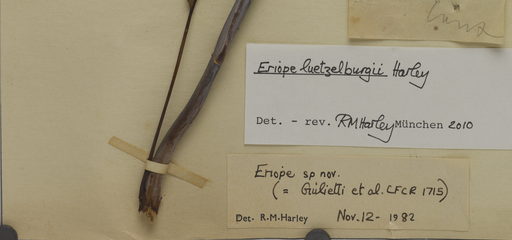 Eriope luetzelburgii Harley
Det. - rev. RMHarley München 2010
Eriope sp nov.
(= Giulietti et al. CFCR 1715)
Det. R.M.Harley Nov. 12 - 1982